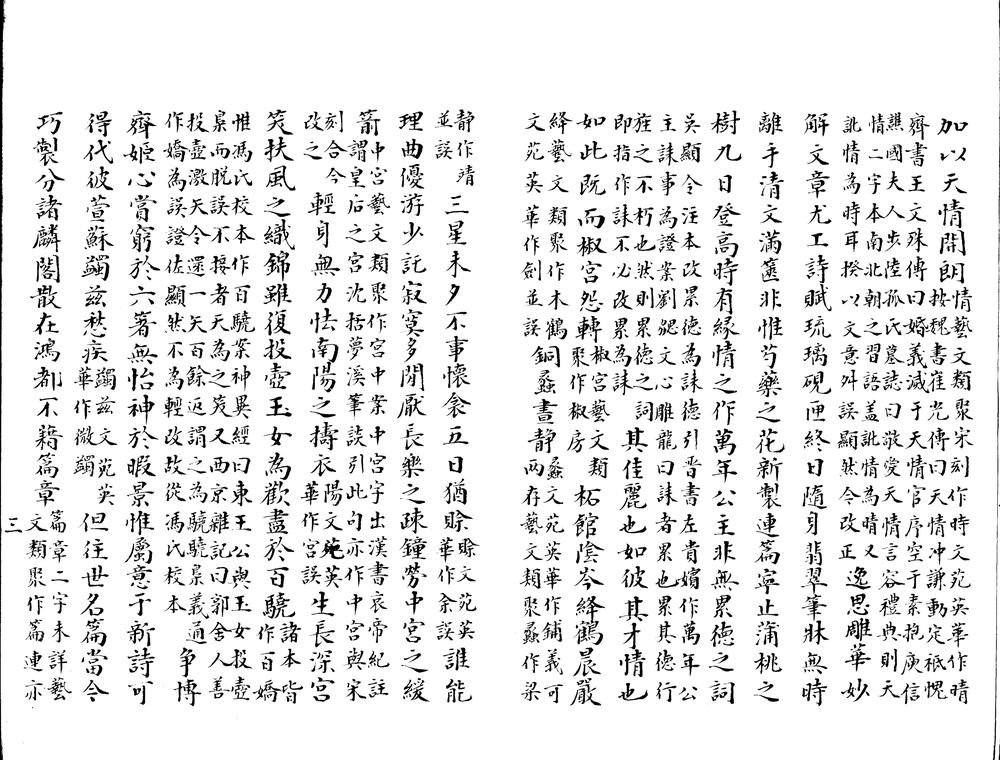 加以天情開朗情藝文類聚宋刻作時文苑英華作晴
按魏書崔光傳曰天情冲謙動定祇愧
齊書王文殊傳曰婚義滅于天情官序空于素抱庾信
譙國夫人步陸孤氏墓誌曰敬愛天情言容禮典則天
情二字本南北朝之習語盖訛情為晴又
訛情為時耳揆以文意舛誤顯然今改正
逸思雕華妙
解文章尤工詩賦琉璃硯匣終日隨身翡翠筆牀無時
離手清文滿篋非惟芍藥之花新製連篇寧止蒲桃之
樹九日登高時有緣情之作萬年公主非無累德之詞
吳顯令注本改累德為誄德引晋書左貴嬪作萬年公
主誄事為證案劉勰文心雕龍曰誄者累也累其德行
旌之不朽也然則累德之詞
即指作誄不必改累為誄
其佳麗也如彼其才情也
如此既而椒宮怨轉椒宮藝文類
聚作椒房
柘館陰岑絳鶴晨嚴
絳藝文類聚作木鶴
文苑英華作劍並誤
銅蠡晝静蠡文苑英華作鋪義可
兩存藝文類聚蠡作梁
静作清
並誤
三星未夕不事懷衾五日猶賒賒文苑英
華作余誤
誰能
理曲優游少託寂寞多閒厭長樂之疎鐘勞中宮之緩
箭中宮藝文類聚作宮中案中宮字出漢書哀帝紀註
謂皇后之宮沈括夢溪筆談引此句亦作中宮與宋
刻合今
改之
輕身無力怯南陽之擣衣陽文苑英
華作宮誤
生長深宮
笑扶風之織錦雖復投壺玉女為歡盡於百驍諸本皆
作百嬌
惟馮氏校本作百驍案神異經曰東王公與玉女投壺
梟而脫誤不接者天為之笑又西京雜記曰郭舍人善
投壺激矢令還一矢百餘返謂之為驍驍梟義通
作嬌為誤證佐顯然不為輕改故從馮氏校本
争博
齊姬心賞窮於六箸無怡神於暇景惟屬意于新詩可
得代彼萱蘇蠲兹愁疾蠲兹文苑英
華作微蠲
但往世名篇當今
巧製分諸麟閣散在鴻都不藉篇章篇章二字未詳藝
文類聚作篇連亦
三